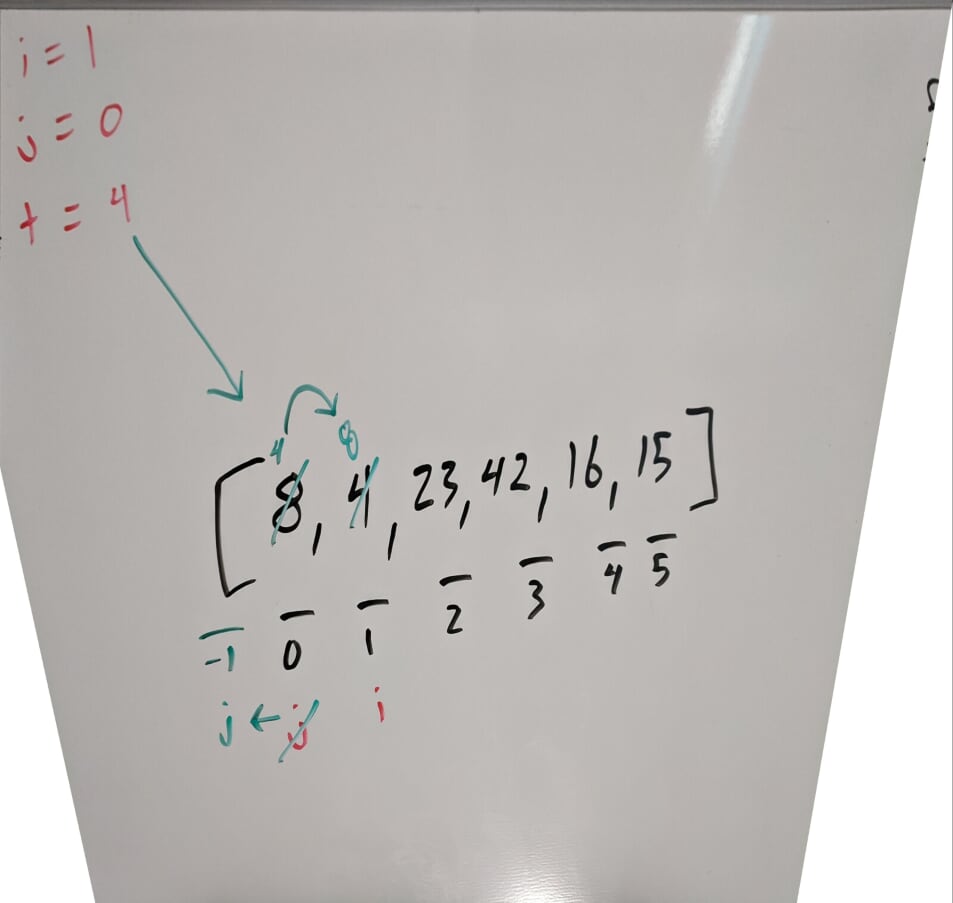 i = 1
j = 0
t = 4
4 8
[8, 4, 23, 42, 16, 15]
-1 0 1 2 3 4 5
j ← j i